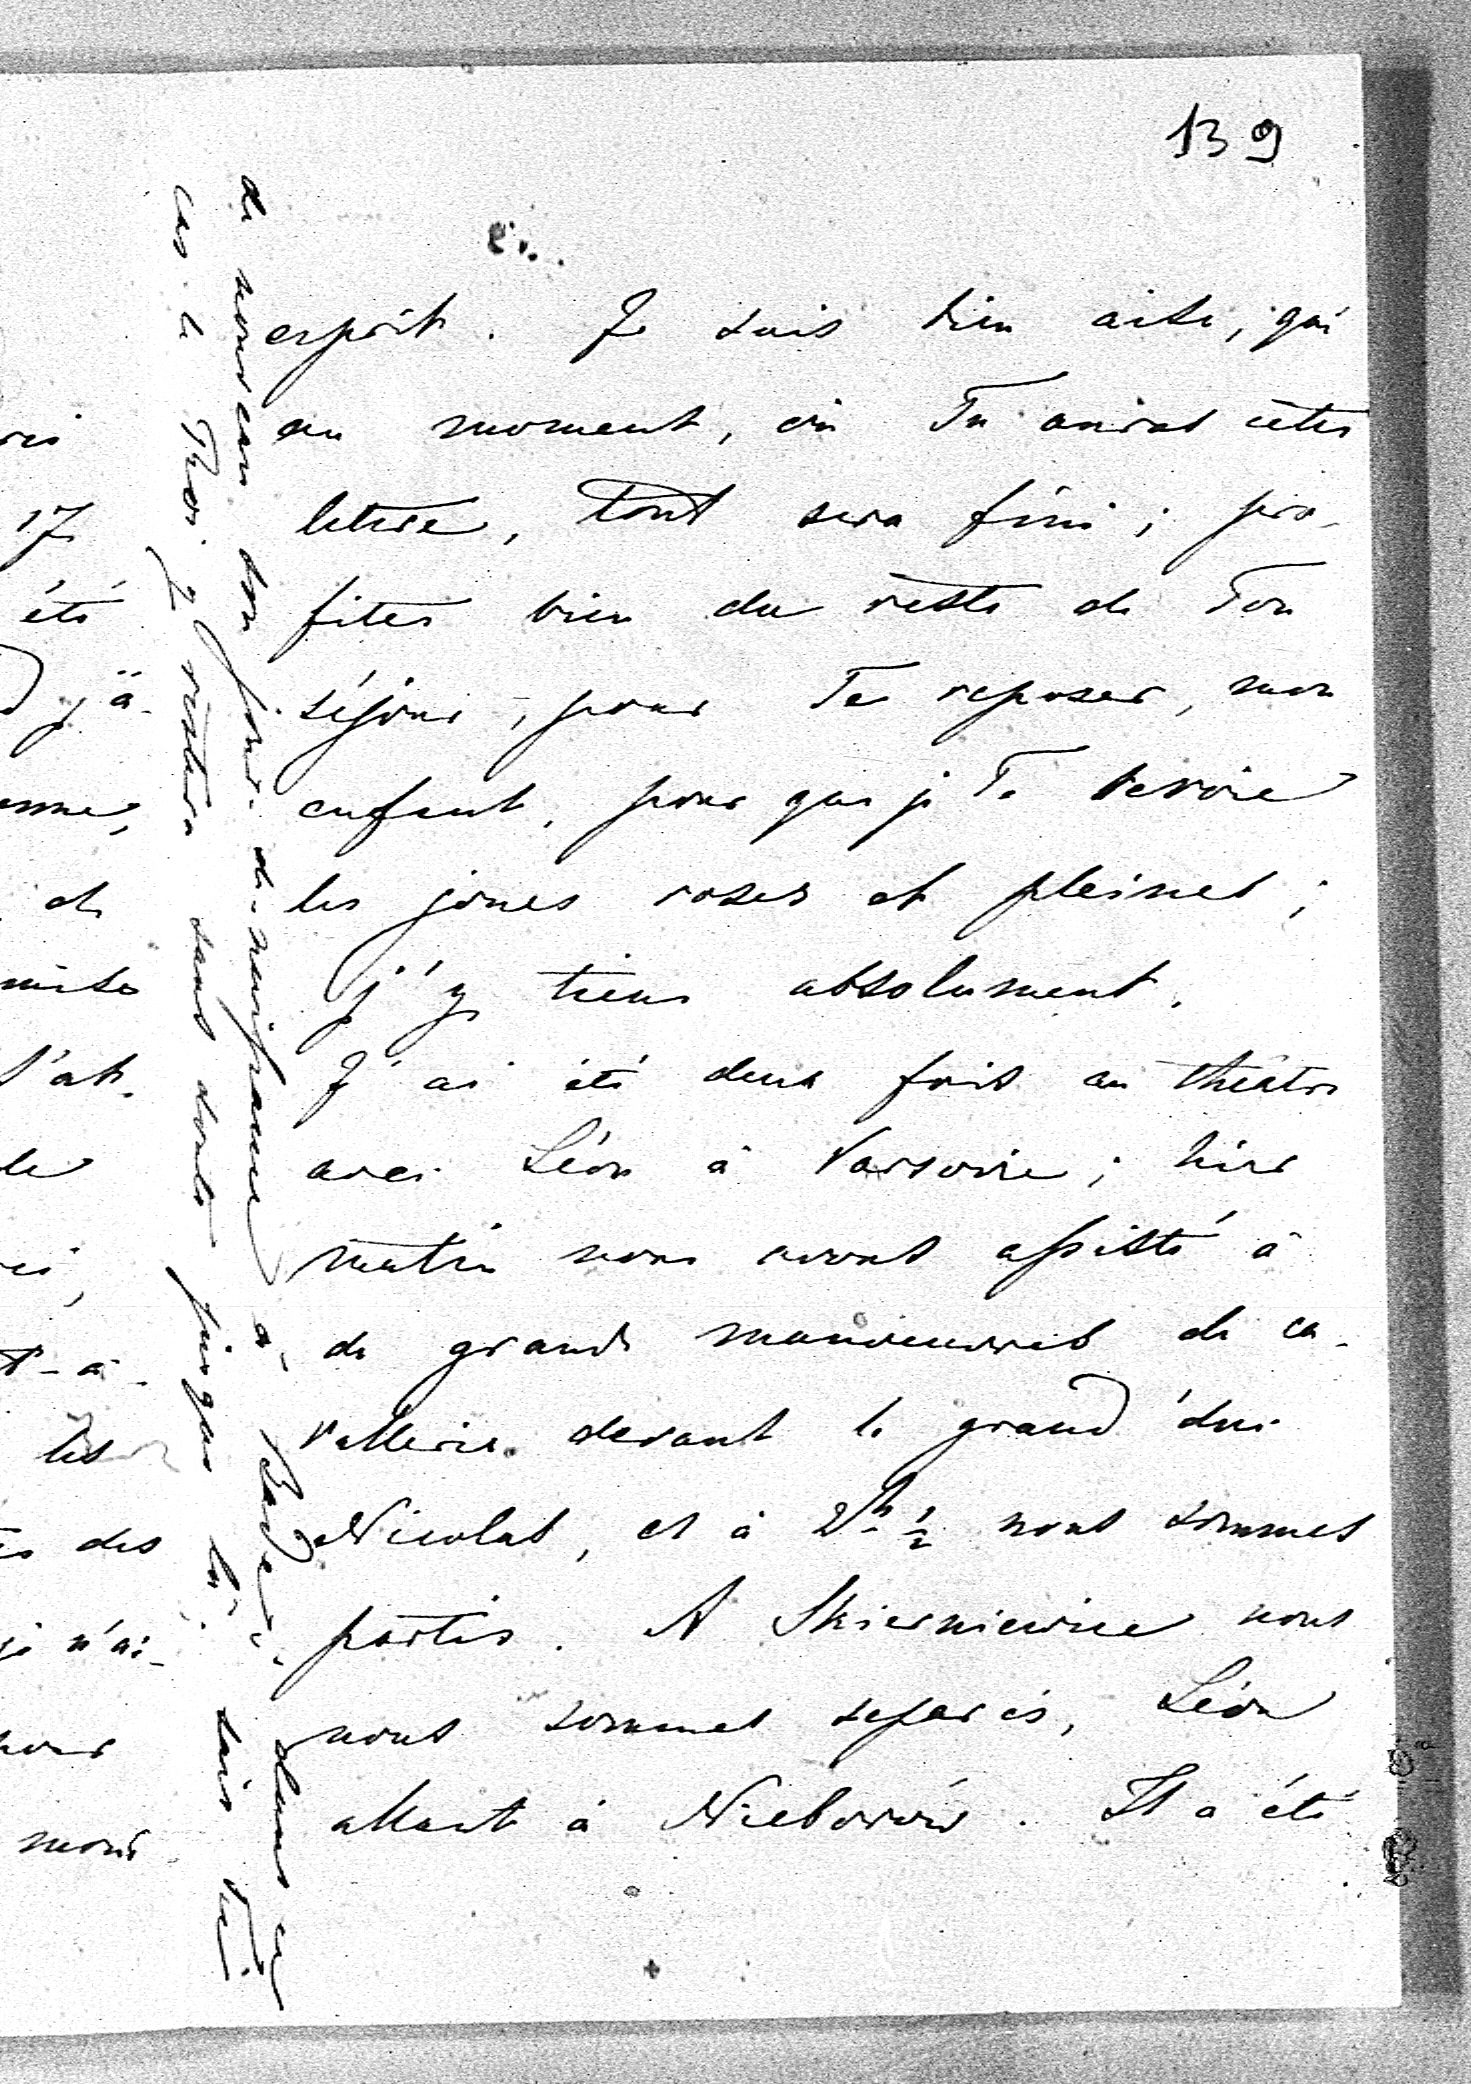 139
esprit. Je suis bien aise, qu'
au moment, où Tu auras cette
lettre, tout sera fini; pro-
fites bien du reste de Ton
séjour, pour Te reposer, mon
enfant, pour que je Te revoie
les joues roses et pleines;
j'y tiens absolument.
J'ai été deux fois au théâtre
avec Léon à Varsovie; hier
matin nous avons assisté à
de grands manoeuvres de ca-
vallerie devant le grand duc
Nicolas, et à 2h ½ nous sommes
partis. A Skierniewice nous
nous sommes separés, Léon
allant à Nieborów. Il a été
de nouveau son jour de naissance à Baden, dans ce
cas le Thér y restera sans doute jusque là, sais tu
ris
17
été
jà-
de
mise
l'at-
le
t-à-
les
des
je n'ai-
pour
mon